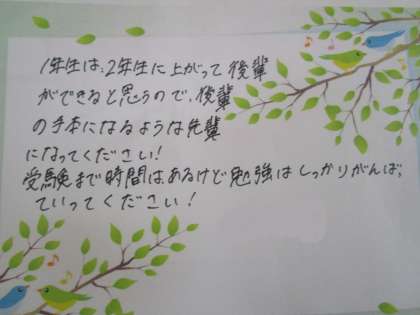 1年生は、2年生に上がって後輩
ができると思うので、後輩
の手本になるような先輩
になってください!
受験まで時間は、あるけど勉強はしっかりがんばっ
ていってください!